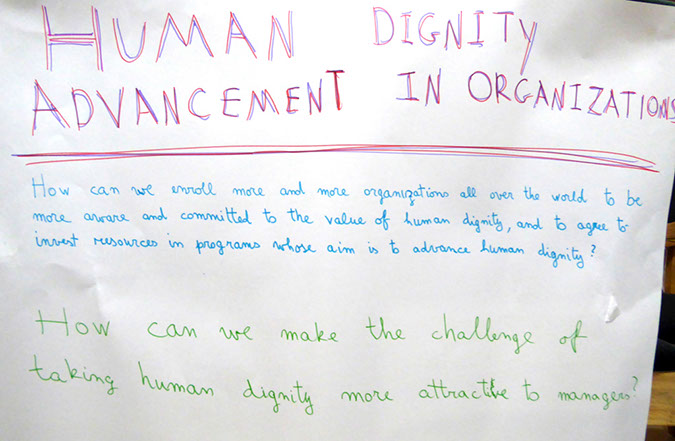 HUMAN DIGNITY
ADVANCEMENT IN ORGANIZATIONS
How can we enroll more and more organizations all over the world to be
more aware and committed to the value of human dignity, and to agree to
invest resources in programs whose aim is to advance human dignity?
How can we make the challenge of
taking human dignity more attractive to managers?